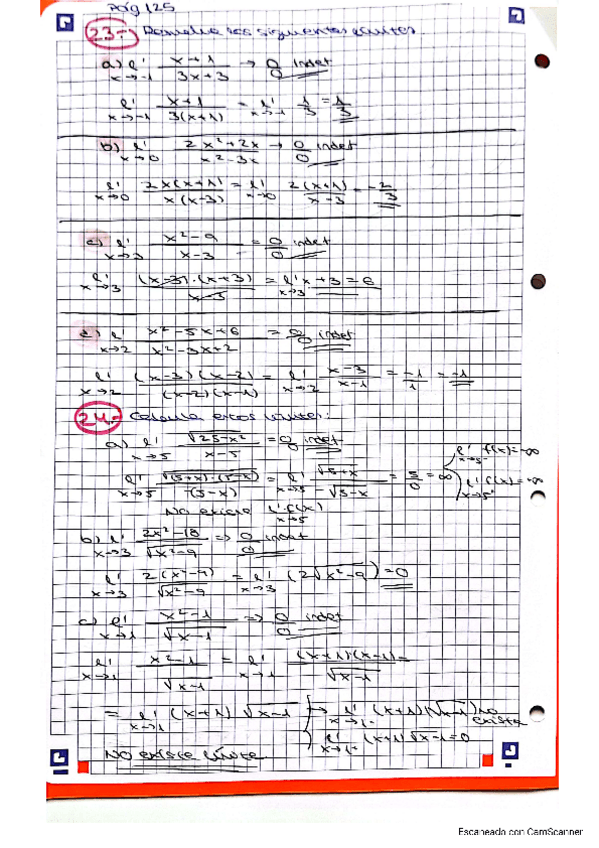 Pág 125
23.- Resuelve los siguientes límites.
a) lí x→-1 x+1 / 3x+3 → 0/0 indet
lí x→-1 x+1 / 3(x+1) = lí x→-1 1/3 = 1/3
b) lí x→0 2x²+2x / x²-3x → 0/0 indet
lí x→0 2x(x+1) / x(x-3) = lí x→0 2(x+1) / x-3 = -2/3
c) lí x→3 x²-9 / x-3 = 0/0 indet
lí x→3 (x-3)·(x+3) / x-3 = lí x→3 x+3 = 6
lí x→2 x²-5x+6 / x²-3x+2 = 0/0 indet
lí x→2 (x-3)(x-2) / (x-2)(x-1) = lí x→2 x-3 / x-1 = -1/1 = -1
24.- Calcula estos límites:
a) lí x→5 √25-x² / x-5 = 0/0 indet
lí x→5 √(5+x)·(5-x) / -(5-x) = lí x→5 √5+x / -√5-x = 5/0 = ∞ lí f(x)=-∞
No existe lí f(x) x→5
b) lí x→3 2x²-18 / √x²-9 ⇒ 0/0 indet
lí x→3 2(x²-9) / √x²-9 = lí x→3 (2√x²-9) = 0
c) lí x→1 x²-1 / √x-1 ⇒ 0/0 indet
lí x→1 x²-1 / √x-1 = lí x→1 (x+1)(x-1) / √x-1 =
= lí x→1 (x+1)√x-1 → lí x→1⁻ (x+1)(√x-1) no existe
lí (x+1)√x-1=0
No existe límite
Escaneado con CamScanner